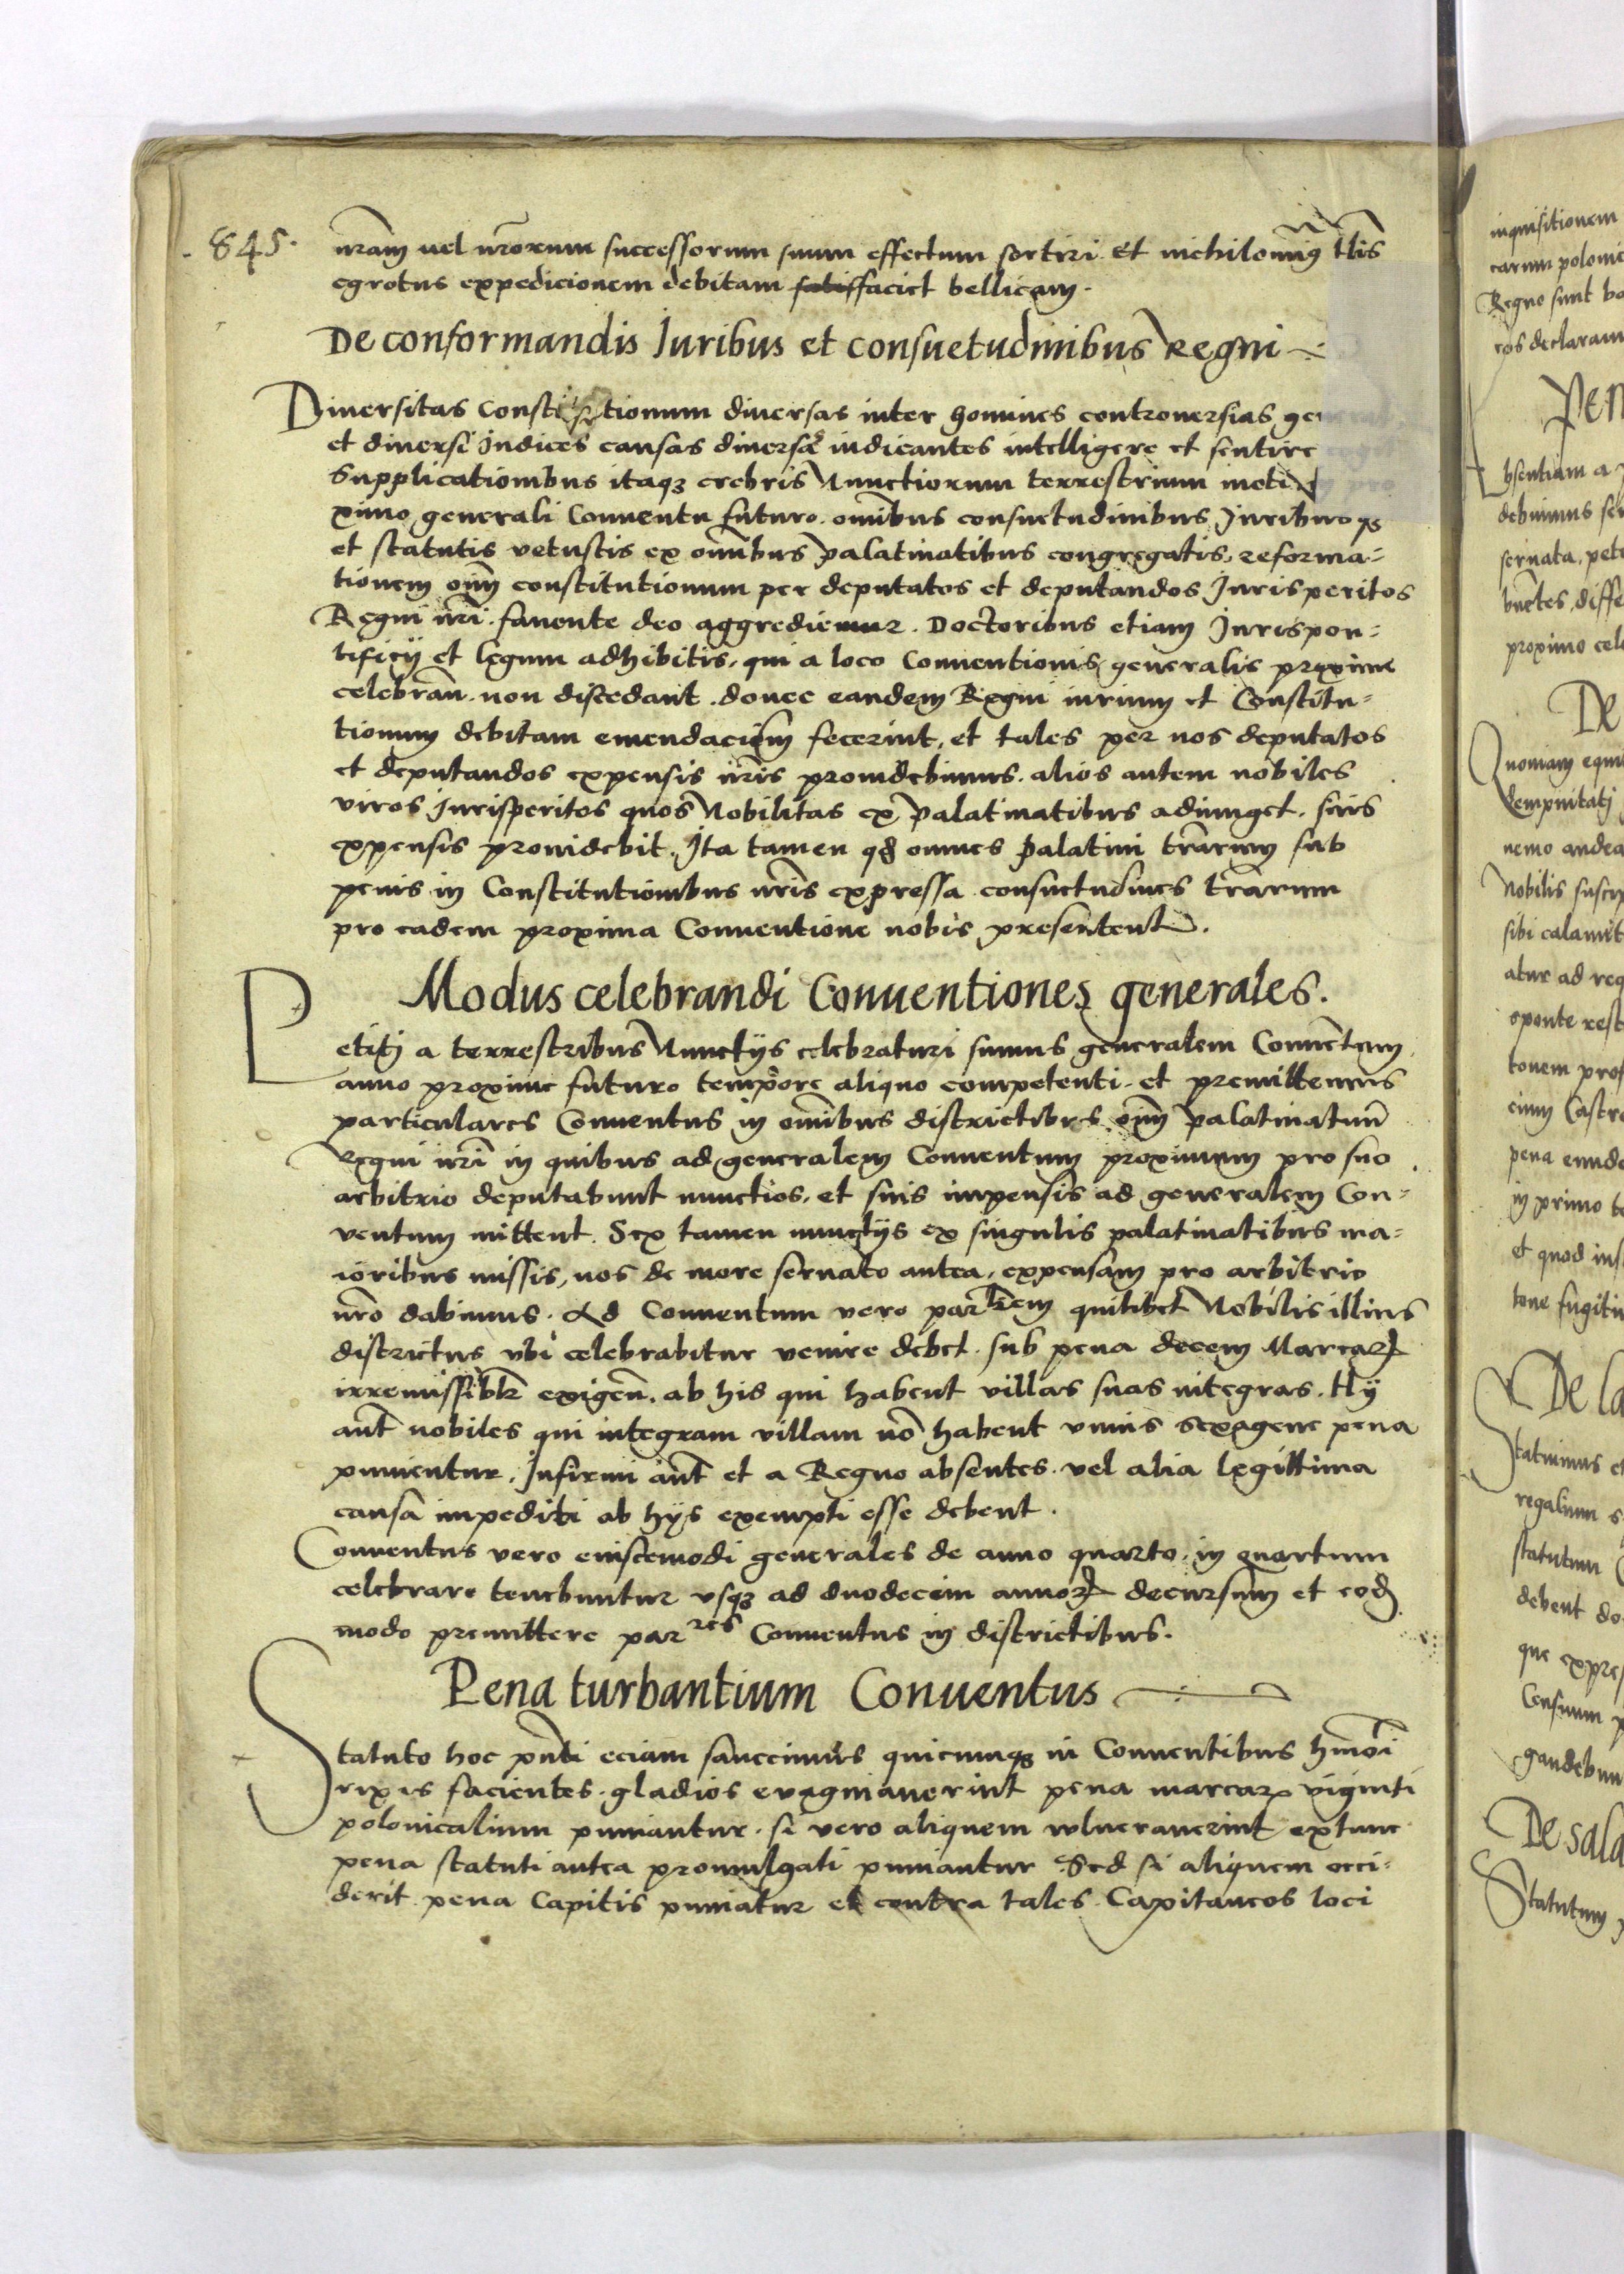 845.
nr̃am uel nr̃orum successorum suum effectum sortiri. Et nichilomi9 tl̃is
egrotus expedicionem debitam satisfaciet bellicam.
De conformandis Juribus et consuetudinibus Regni
Diuersitas Constitutionum diuersas inter homines controuersias
et diuersi Judices causas diuersas iudicantes intelligere et sentire
Supplicationibus itaqꝫ crebris Nunctiorum terrestrium moti pro
ximo generali Conuentu futuro. omĩbus consuetudinibus Juribusqꝫ
et statutis vetustis ex omĩbus palatinatibus congregatis, reforma=
tionem om̃ constitutionum per deputatos et deputandos Jurisperitos
Regni nr̃i. fauente deo aggrediemur. Doctoribus etiam Jurispon=
tificij et legum adhibitis, qui a loco Conuentionis generalis proxime
celebrañ. non discedant. donec eandem Regni iurium et Constitu=
tionum debitam emendacioñm fecerint, et tales per nos deputatos
et deputandos expensis nr̃is prouidebimus. alios autem nobiles
viros Jurisperitos quos Nobilitas ex palatinatibus adiunget. suis
expensis prouidebit. Ita tamen qđ omnes palatini tr̃arum sub
penis in Constitutionibus nr̃is expressa consuetudines tr̃arum
pro eadem proxima Conuentione nobis presentent.
Modus celebrandi Conuentiones generales.
Petitj a terrestribus Nunctijs celebraturi sumus generalem Conuẽtum
anno proxime futuro tempore aliquo competenti. et premittemus
particulares Conuentus in omĩbus districtibus om̃ palatinatum
Regni nr̃i in quibus ad generalem Conuentum proximum pro suo
arbitrio deputabunt nunctios. et suis impensis ad generalem Con=
uentum mittent. Sex tamen nunctijs ex singulis palatinatibus ma=
ioribus missis, nos de more seruato antea, expensam pro arbitrio
nr̃o dabimus. Ad Conuentum vero parlrem quilibet Nobilis illius
districtus vbi celebrabitur venire debet. sub pena decem Marcaꝝ
irremissiblr exigeñ. ab his qui habent villas suas integras. Hij
aut̃ nobiles qui integram villam nõ habent vnius sexagene pena
punientur. Infirmi aut̃ et a Regno absentes. vel alia legittima
causa impediti ab hijs exempti esse debent.
Conuentus vero eiuscemodi generales de anno quarto. in quartum
celebrare tenebuntur vsqꝫ ad duodecim annoꝝ decursum et eođ
modo premittere parres Conuentus in districtibus.
Pena turbantium Conuentus
Statuto hoc pñti eciam sanccimus quicumqꝫ in Conuentibus hm̃oi
rixas facientes. gladios euaginauerint pena marcaꝝ viginti
polonicalium puniantur. si vero aliquem vulnerauerint extunc
pena statuti antea promulgati puniantur Sed si aliquem occi=
derit. pena Capitis puniatur et contra tales Capitaneos loci
inquisitionem
Regno sunt
declaram
Pen
proximo cele
De
nobilis
sibi calamit
sponte
pena
in primo
et quod
De la
Statuimus et
statutum
debent
que expres
Censuum
gaudebun
De sala
Statutum